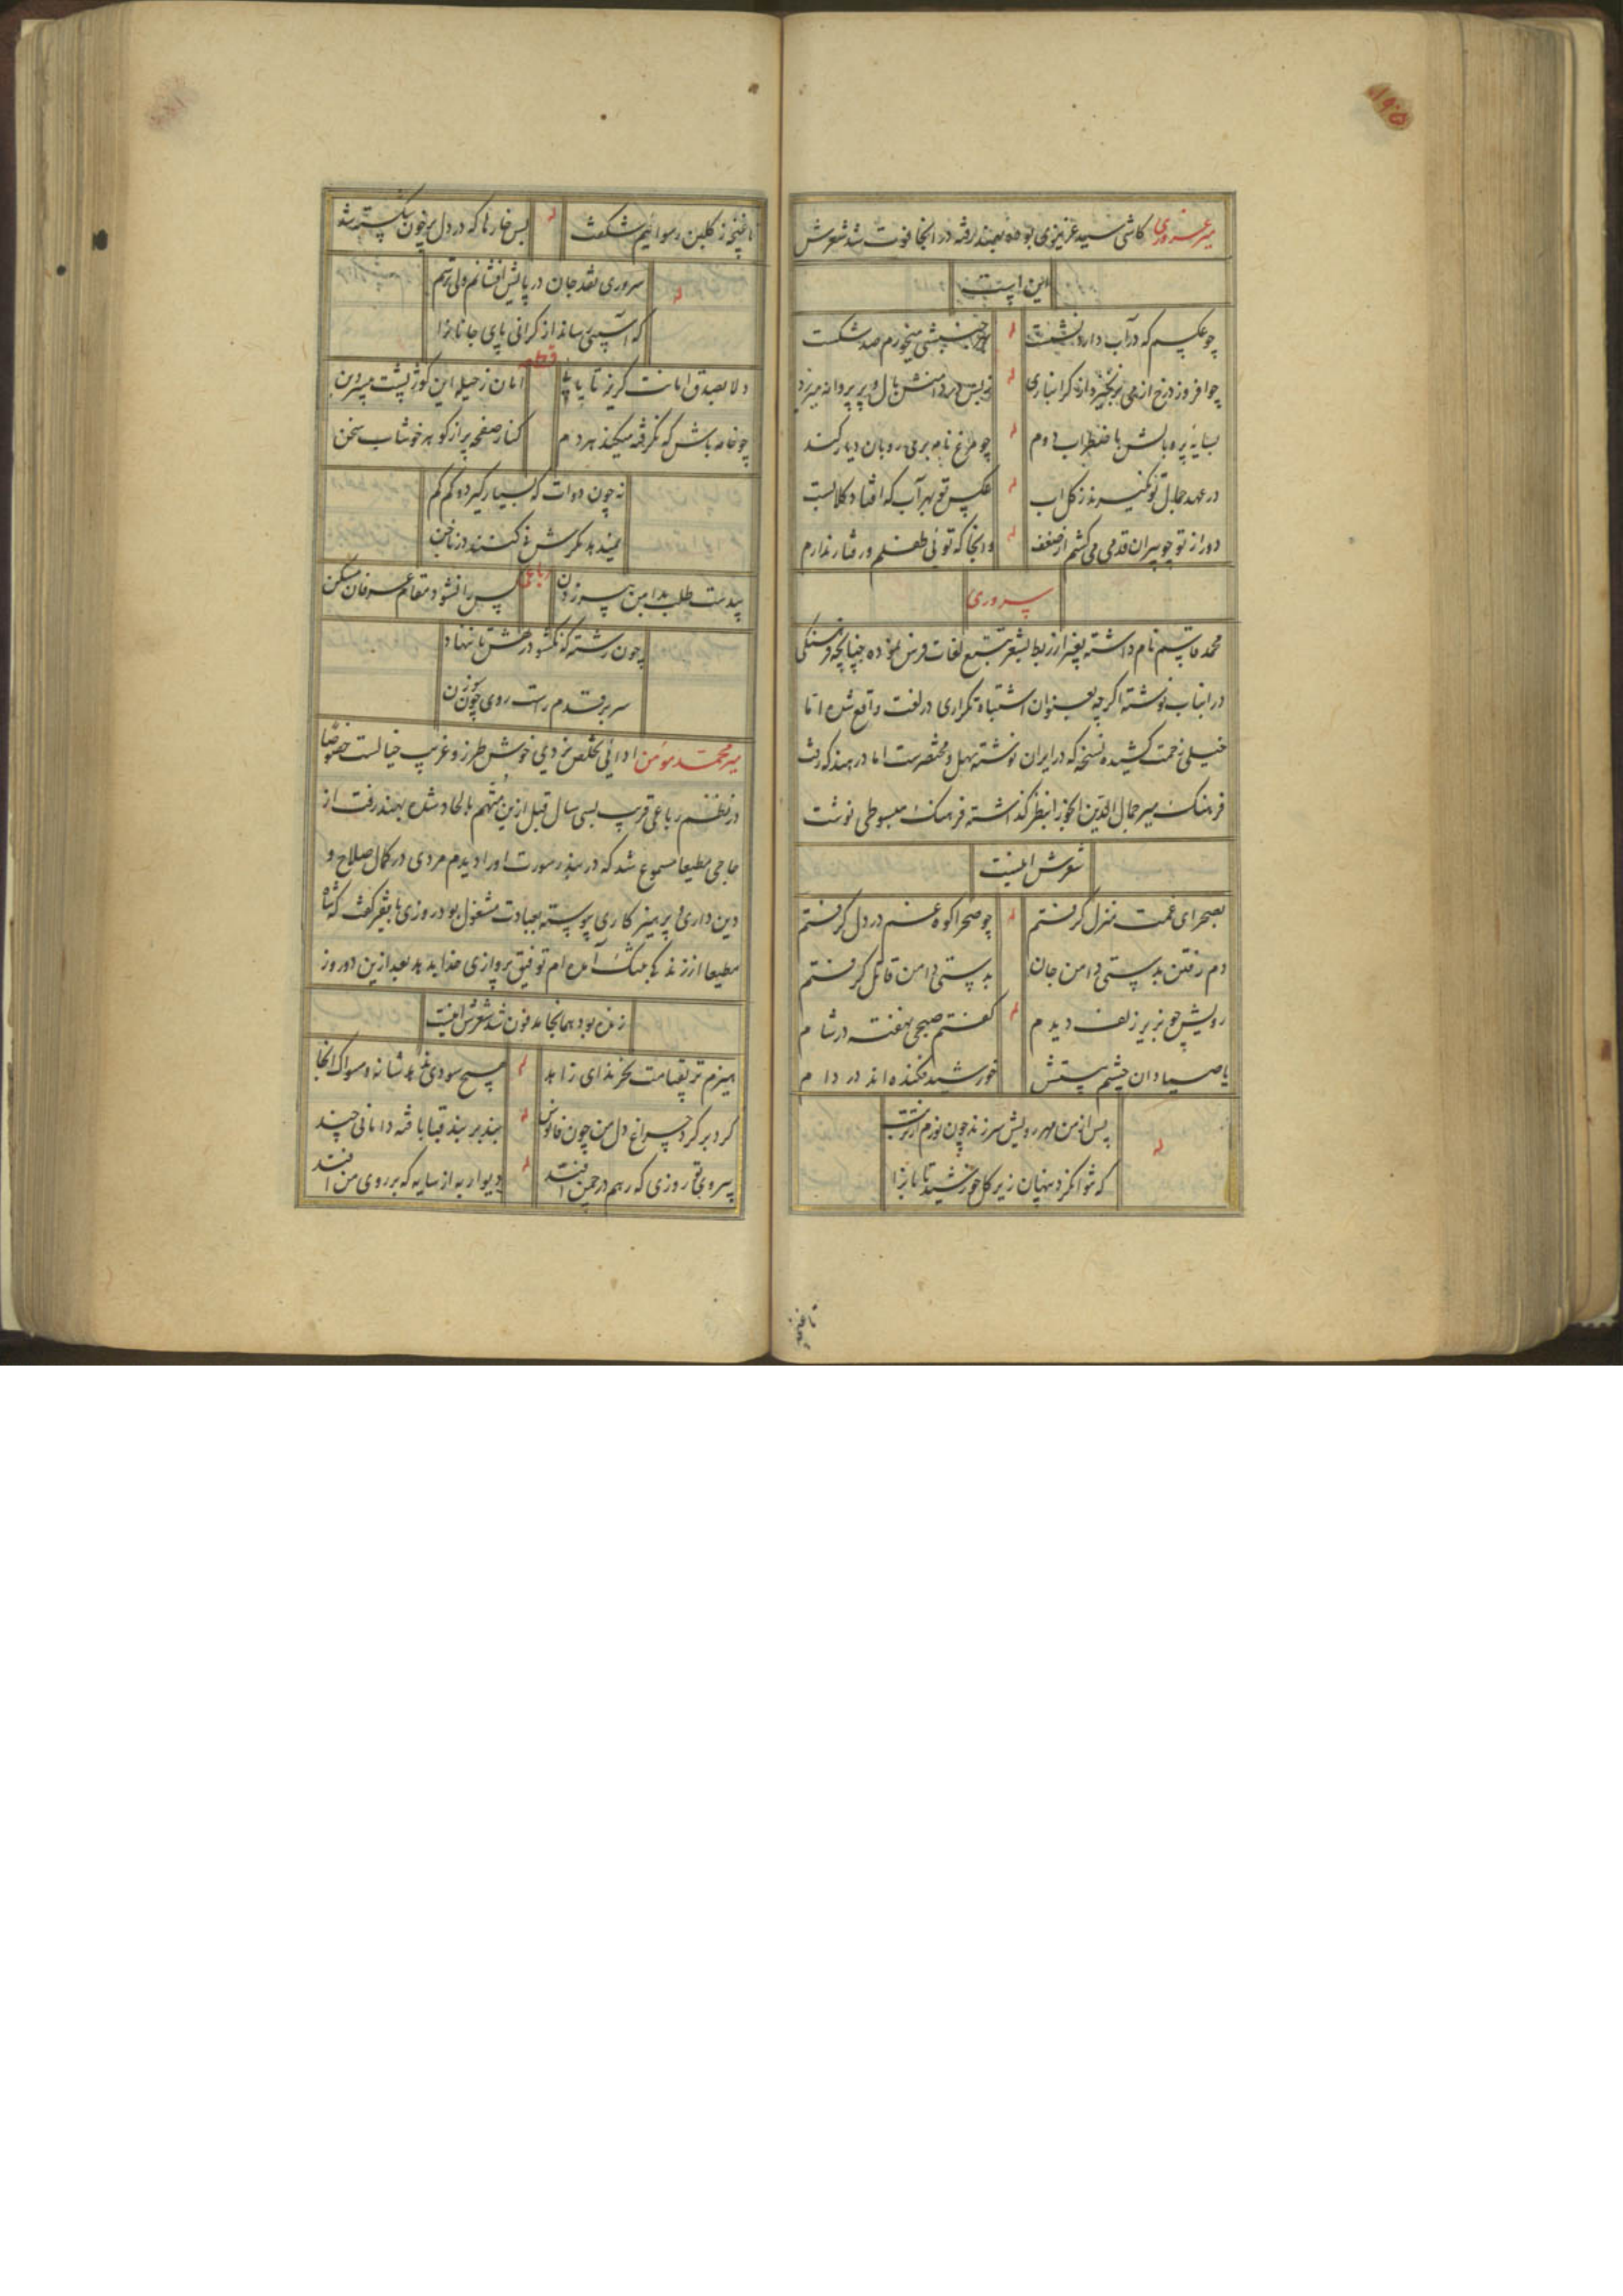 میر عزوری کاشی سید عزیزی بوده بهند رفته در انجا فوت شد شعرش
این است
چو عکسیم که در آب دارد نشست
له
بهر جنبشی میخورم صد شکست
چو افروزد رخ از می بر نخیزد از گرانباری
له
ز بس در دامنش بال و پر پروانه میریزد
بسایهٔ پر و بالش باضطراب دوم
له
چو مرغ نامه بری رو بان دیار کند
در عهد جمال تو نگیرند ز گل اب
له
عکس تو بهر آب که افتاد گلابست
دور از تو چو پیران قدمی می کشم از ضعف
له
و انجا که توئی طفلم و رفتار ندارم
سروری
محمد قاسم نام داشته بغیر از ربط بشعر تتبع لغات فرس نموده چنانچه فرهنگی
در انباب نوشته اگرچه بعنوان اشتباه تکراری در لغت واقع شده اما
خیلی زحمت کشیده نسخه که در ایران نوشته سهل و مختصرست اما در هند که رفت
فرهنگ میر جمال الدین انجو را بنظر گذاشته فرهنگ مبسوطی نوشت
شعرش اینست
بصحرای غمت منزل گرفتم
له
چو صحرا کوه غم در دل گرفتم
دم رفتن بدستی دامن جان
بدستی دامن قاتل گرفتم
رویش چو بزیر زلف دیدم
له
گفتم صبحی نهفته در شام
یا صیادان چشم مستش
خورشید فکنده اند در دام
پس از من مهر رویش سرزند چون نورم از تربت
له
که نتوان کرد پنهان زیر گل خورشید تابانرا
تا غنچه
تا غنچه ز گلبن رسوائیم شکفت
له
بس خارها که در دل پر خون شکسته شد
سروری نقد جان در پایش افشانم ولی ترسم
له
که آسیبی رساند از گرانی پای جانانرا
قطعه
دلا بصدق امانت گریز تا یابی
امان ز حیله این کوژپشت
چو خامه باش که نگرفته میکند هر دم
کنار صفحه پر از گوهر خوشاب سخن
نه چون دوات که بسیار گیرد و کم کم
نمیدهد مگرش نی کنند در ناخن
رباعی
بیدست طلب بدامن پیر زدن
پس را نشود مقام عرفان مسکن
چون رشته که نگشود رهش تا ننهاد
سر بر قدم راست روی چون سوزن
میر محمد مومن ادائی تخلص یزدی خوش طرز و غریب خیالست خصوصا
در نظم رباعی قریب بسی سال قبل ازین متهم بالحاد شده بهند رفت از
حاجی مطیعا مسموع شد که در بندر سورت اورا دیدم مردی در کمال صلاح و
دین داری و پرهیز کاری پیوسته بعبادت مشغول بود روزی با فقیر گفت که شاه
مطیعا از زندگی بتنگ آمده ام توفیق پروازی خدا بدهد بعد ازین دو روز
زنده بود همانجا مدفون شد شعرش اینست
هیزم تر بقیامت نخرند ای زاهد
له
هیچ سودی ندهد شانه و مسواک انجا
گرد بر گرد چراغ دل من چون فانوس
له
بند بر بند قبا بافته دامانی چند
بیروی تو روزی که رهم در چمن افتد
له
دیوار به از سایه که بر روی من افتد